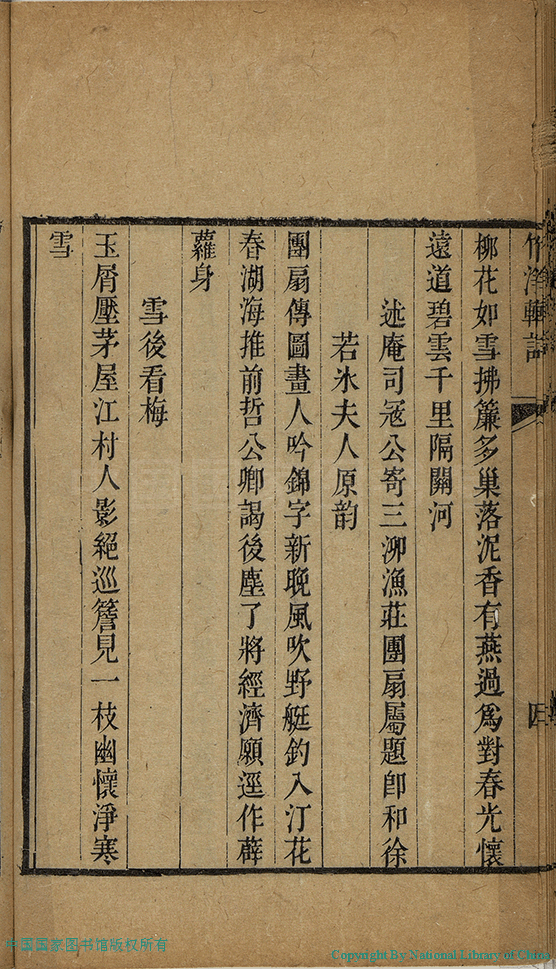 柳花如雪拂簾多巢落泥香有燕過爲對春光懷
遠道碧雲千里隔關河
述庵司冦公寄三泖漁莊團扇屬題卽和徐
若氷夫人原韵
團扇傳圖畫人吟錦字新晚風吹野艇釣入汀花
春湖海推前哲公卿謁後塵了將經濟願逕作薜
蘿身
雪後看梅
玉屑壓茅屋江村人影絕巡簷見一枝幽懷淨寒
雪
中国国家图书馆版权所有
Copyright By National Library of China